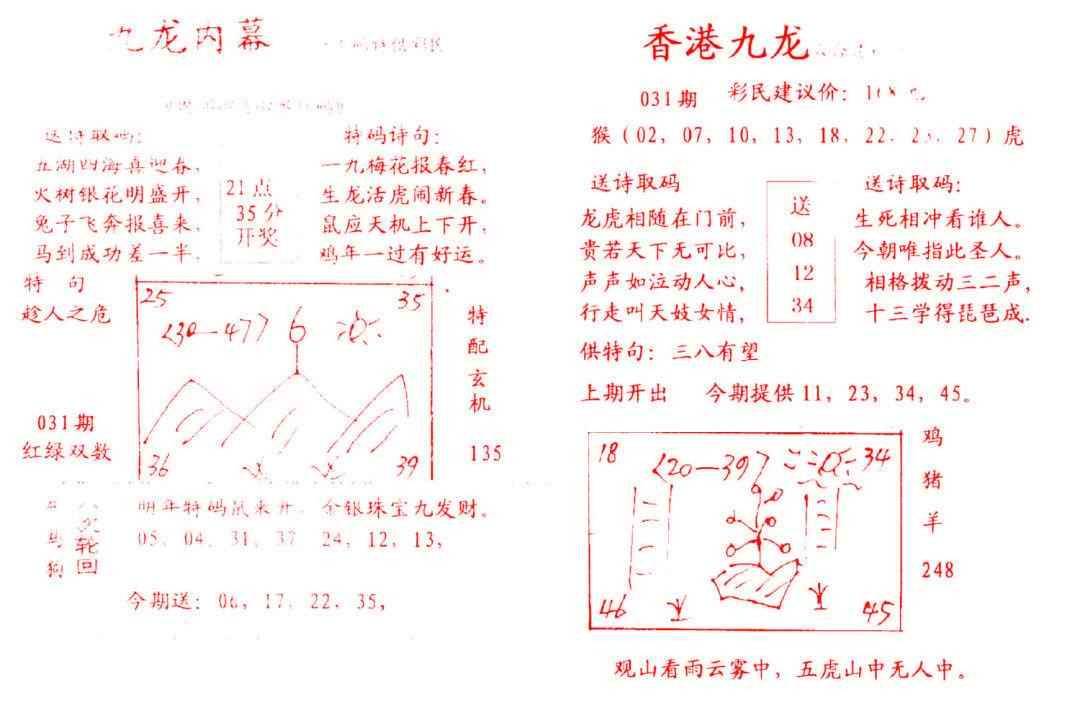 九龙内幕
送诗取码:
五湖四海喜迎春，
火树银花明盛开，
兔子飞奔报喜来，
马到成功差一半，
21点
35分
开奖
特码诗句:
一九梅花报春红，
生龙活虎闹新春。
鼠应天机上下开，
鸡年一过有好运。
特 句
趁人之危
031期
红绿双数
25
35
<30—47>
6
36
39
特配玄机
135
轮回
狗
明年特码鼠来开，金银珠宝九发财。
05、04、31、37 24，12，13，
今期送：06，17、22、35，
香港九龙
031期 彩民建议价：
猴（02，07，10，13，18，22，23，27）虎
送诗取码
龙虎相随在门前，
贵若天下无可比，
声声如泣动人心，
行走叫天妓女情，
送
08
12
34
送诗取码：
生死相冲看谁人。
今朝唯指此圣人。
相格拨动三二声，
十三学得琵琶成.
供特句：三八有望
上期开出 今期提供11，23，34，45。
18
<20—39>
34
46
45
鸡
猪
羊
248
观山看雨云雾中，五虎山中无人中。